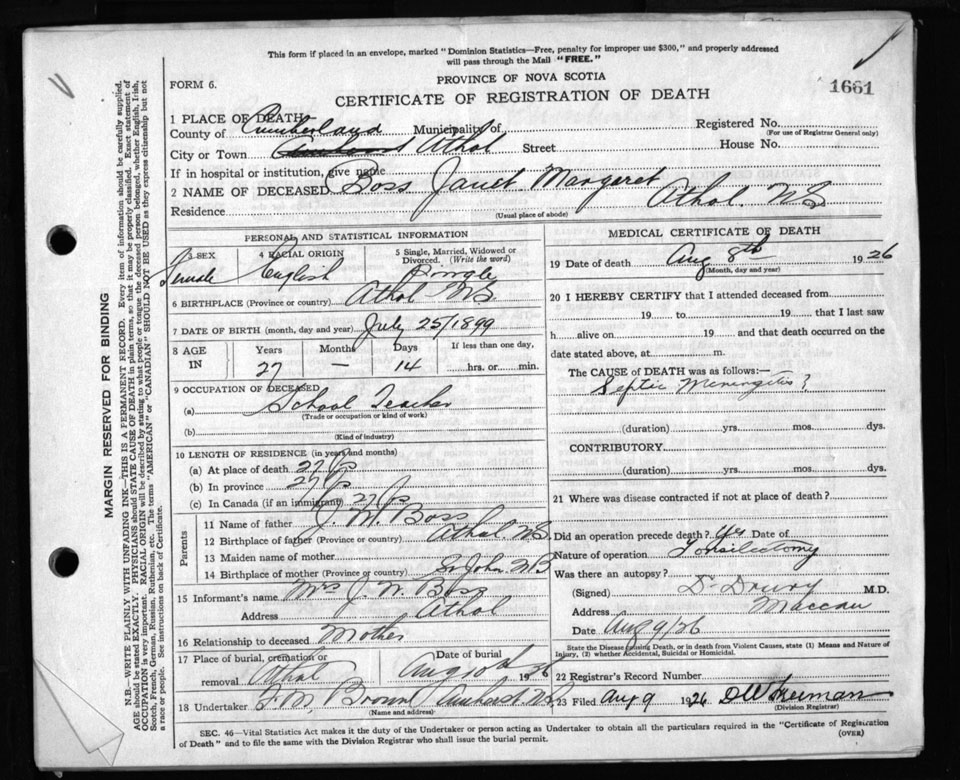 This form if placed in an envelope, marked "Dominion Statistics—Free, penalty for improper use $300," and properly addressed
will pass through the Mail "FREE."
FORM 6.
PROVINCE OF NOVA SCOTIA
1661
CERTIFICATE OF REGISTRATION OF DEATH
1 PLACE OF DEATH
County of Cumberland Municipality of Registered No.
(For use of Registrar General only)
City or Town Athol Street House No.
If in hospital or institution, give name
2 NAME OF DECEASED Boss Janet Margaret
Residence Athol. N.S.
(Usual place of abode)
PERSONAL AND STATISTICAL INFORMATION
3 SEX 4 RACIAL ORIGIN 5 Single, Married, Widowed or
Divorced. (Write the word)
Female English Single
6 BIRTHPLACE (Province or country) Athol N.S.
7 DATE OF BIRTH (month, day and year) July 25/1899
8 AGE Years Months Days If less than one day,
IN 27 — 14 hrs. or min.
9 OCCUPATION OF DECEASED
(a) School Teacher
(Trade or occupation or kind of work)
(b)
(Kind of industry)
10 LENGTH OF RESIDENCE (in years and months)
(a) At place of death 27
(b) In province 27
(c) In Canada (if an immigrant) 27
Parents
11 Name of father J. M. Boss
12 Birthplace of father (Province or country) Athol N.S.
13 Maiden name of mother
14 Birthplace of mother (Province or country) St John N B
15 Informant's name Mrs J. W. Boss
Address Athol
16 Relationship to deceased Mother
17 Place of burial, cremation or Date of burial
removal Athol Aug 10 1926
18 Undertaker Brown Amherst N.S.
(Name and address)
MEDICAL CERTIFICATE OF DEATH
19 Date of death Aug 8th 1926
(Month, day and year)
20 I HEREBY CERTIFY that I attended deceased from
19 to 19 that I last saw
h alive on 19 and that death occurred on the
date stated above, at m.
The CAUSE of DEATH was as follows:—
Septic Meningitis?
(duration) yrs. mos. dys.
CONTRIBUTORY
(duration) yrs. mos. dys.
21 Where was disease contracted if not at place of death?
Did an operation precede death? Yes Date of
Nature of operation Tonsilectomy
Was there an autopsy?
(Signed) Dr Drury M.D.
Address Maccan
Date Aug 9/26
State the Disease causing Death, or in death from Violent Causes, state (1) Means and Nature of
Injury, (2) whether Accidental, Suicidal or Homicidal.
22 Registrar's Record Number
23 Filed Aug 9 1926
(Division Registrar)
SEC. 46—Vital Statistics Act makes it the duty of the Undertaker or person acting as Undertaker to obtain all the particulars required in the "Certificate of Registration
of Death" and to file the same with the Division Registrar who shall issue the burial permit.
(OVER)
MARGIN RESERVED FOR BINDING
N.B.—WRITE PLAINLY WITH UNFADING INK—THIS IS A PERMANENT RECORD. Every item of information should be carefully supplied.
AGE should be stated EXACTLY. PHYSICIANS should STATE CAUSE OF DEATH in plain terms, so that it may be properly classified. Exact statement of
OCCUPATION is very important. RACIAL ORIGIN will be described by stating to what people or tongue the deceased person belonged, whether English, Irish,
Scotch, French, German, Russian, Ruthenian, etc. The terms "AMERICAN" or "CANADIAN" SHOULD NOT BE USED as they express citizenship but not
a race or people. See instructions on back of Certificate.